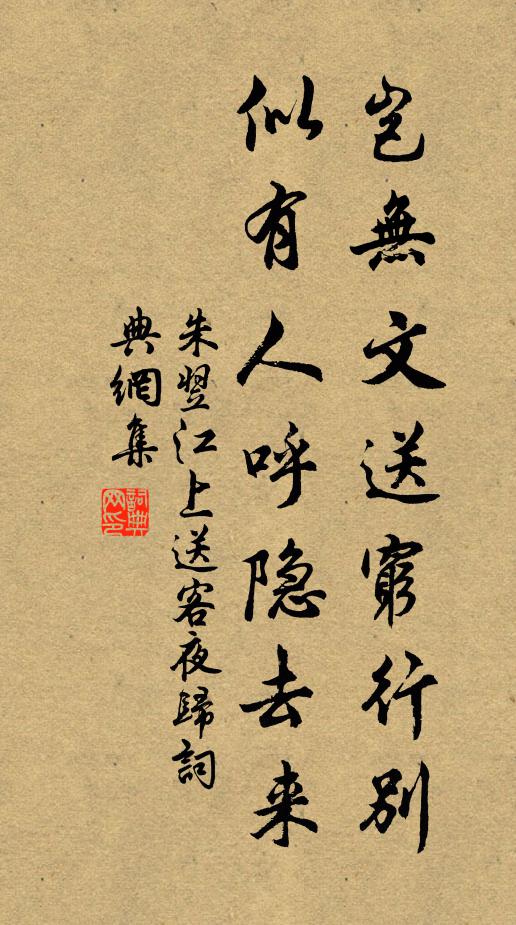 豈無文送窮行別
似有人呼隐去来
朱翌江上送客夜歸詞
典網集
詞典網印